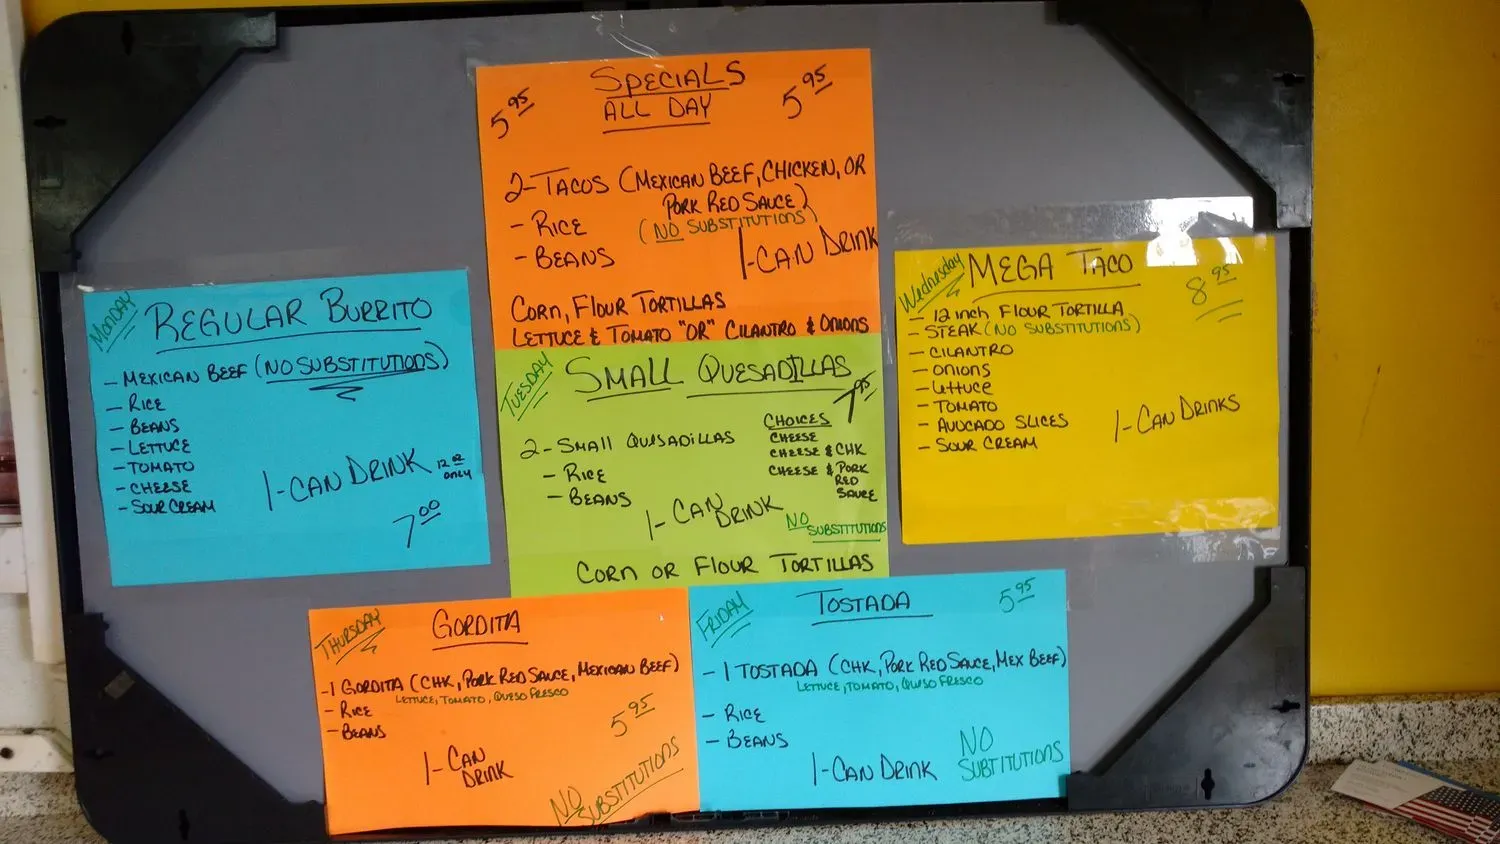 SPECIALS
ALL DAY
5.95
5.95
2-TACOS (MEXICAN BEEF, CHICKEN, OR
PORK RED SAUCE)
- RICE
(NO SUBSTITUTIONS)
- BEANS
1-CAN DRINK
CORN, FLOUR TORTILLAS
LETTUCE & TOMATO "OR" CILANTRO & ONIONS
MONDAY
REGULAR BURRITO
- MEXICAN BEEF (NO SUBSTITUTIONS)
- RICE
- BEANS
- LETTUCE
- TOMATO
- CHEESE
- SOUR CREAM
1-CAN DRINK 12 oz ONLY
7.00
TUESDAY
SMALL QUESADILLAS
7.95
2-SMALL QUISADILLAS
- RICE
- BEANS
CHOICES
CHEESE
CHEESE & CHK
CHEESE & PORK
RED
SAUCE
1-CAN
DRINK
NO
SUBSTITUTIONS
CORN OR FLOUR TORTILLAS
Wednesday
MEGA TACO
8.95
- 12 inch FLOUR TORTILLA
- STEAK (NO SUBSTITUTIONS)
- CILANTRO
- ONIONS
- LETTUCE
- TOMATO
- AVOCADO SLICES
- SOUR CREAM
1-CAN DRINKS
THURSDAY
GORDITA
-1 GORDITA (CHK, PORK RED SAUCE, MEXICAN BEEF)
LETTUCE, TOMATO, QUESO FRESCO
- RICE
- BEANS
5.95
1-CAN
DRINK
NO
SUBSTITUTIONS
FRIDAY
TOSTADA
5.95
- 1 TOSTADA (CHK, PORK RED SAUCE, MEX BEEF)
LETTUCE, TOMATO, QUISO FRESCO
- RICE
- BEANS
1-CAN DRINK
NO
SUBTITUTIONS